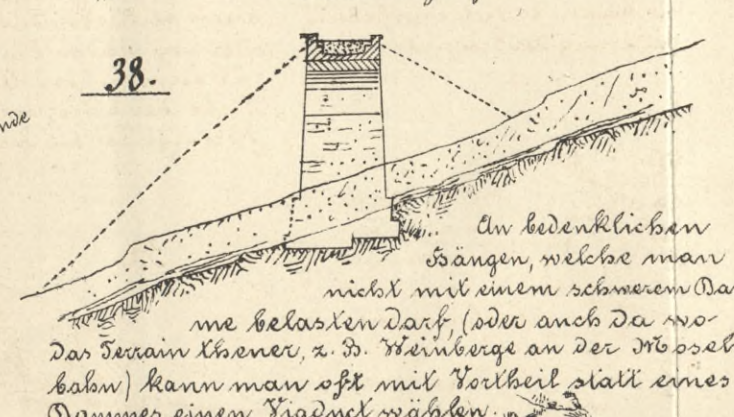 38.
nde
An bedenklichen
Hängen, welche man
nicht mit einem schwerem Da
me belasten darf, (oder auch da wo
das Terrain theuer, z. B. Weinberge an der Mosel
bahn) kann man oft mit Vortheil statt eines
Dammes einen Viaduct wählen.